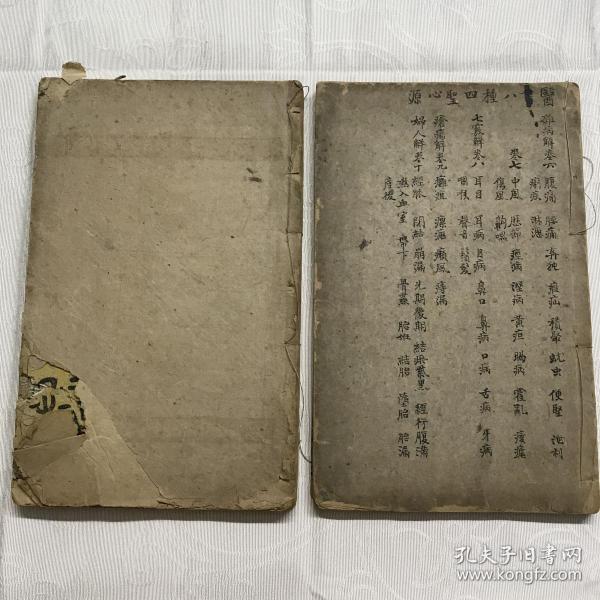 醫書八種四聖心源
雜病解卷六 腹痛 腰痛 奔豚 㿗疝 積聚 蚘虫 便堅 泄利
痢疾 淋瀝
卷七 中風 歷節 痙病 濕病 黃疸 暍病 霍亂 痎瘧
傷風 齁喘
七竅解卷八 耳目 耳病 目病 鼻口 鼻病 口病 舌病 牙病
咽喉 聲音 鬚髮
瘡瘍解卷九 癰疽 瘰癧 癩風 痔漏
婦人解卷十 經脉 閉結 崩漏 先期後期 結瘀紫黑 經行腹痛
熱入血室 帶下 骨蒸 胎姙 結胎 墮胎 胎漏
產後
孔夫子旧書网
www.kongfz.com